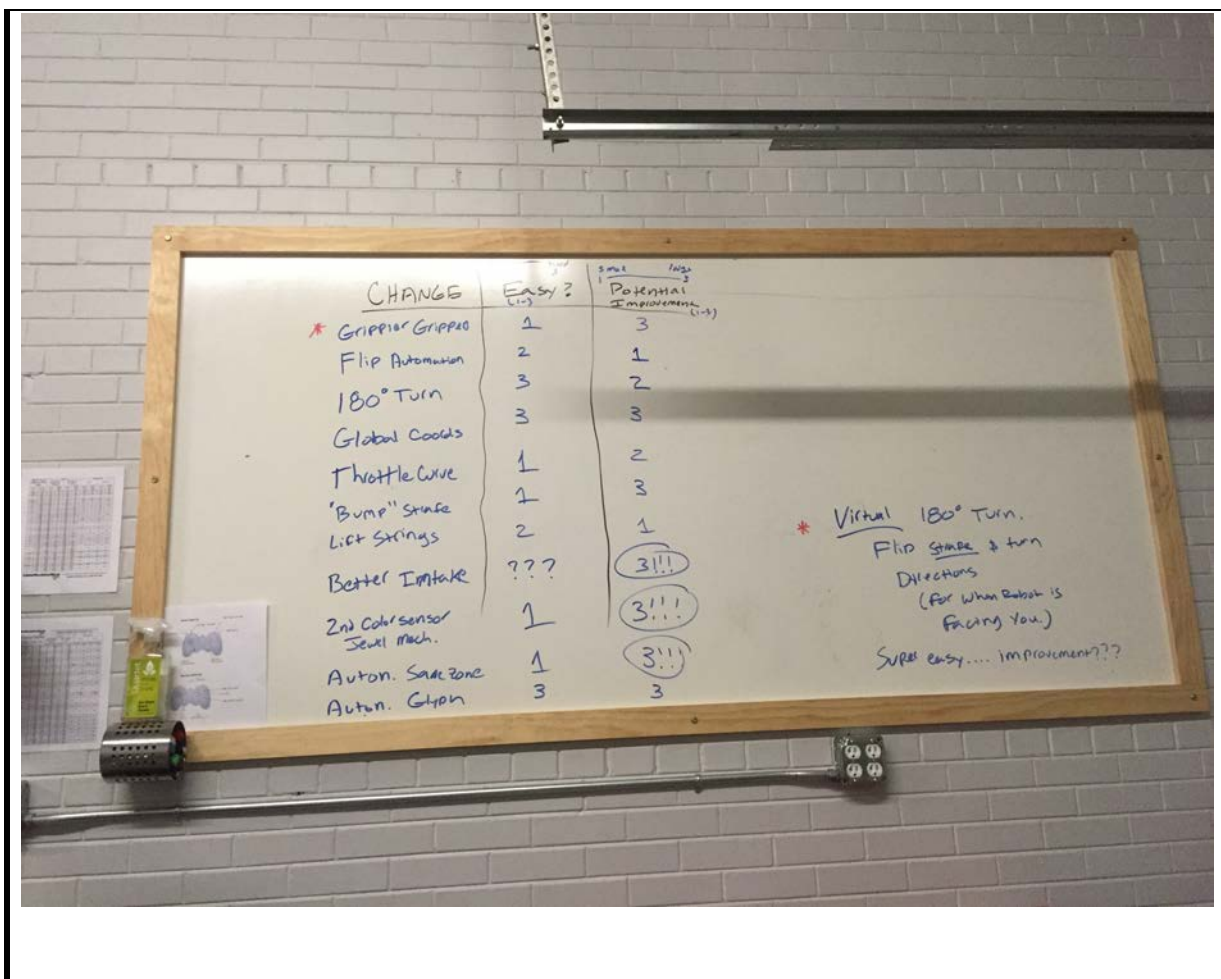 small large
1 3
CHANGE Easy? Potential
(1-3) Improvement
(1-3)
* Grippier Gripper 1 3
Flip Automation 2 1
180° Turn 3 2
Global Coords 3 3
Throttle Curve 1 2
"Bump" Strafe 1 3
Lift Strings 2 1
Better Intake ??? 3!!!
2nd Color sensor 1 3!!!
Jewel Mech.
Auton. Safe zone 1 3!!!
Auton. Glyph 3 3
* Virtual 180° Turn.
Flip strafe & turn
Directions
(For when Robot is
Facing You.)
Super easy.... improvement???